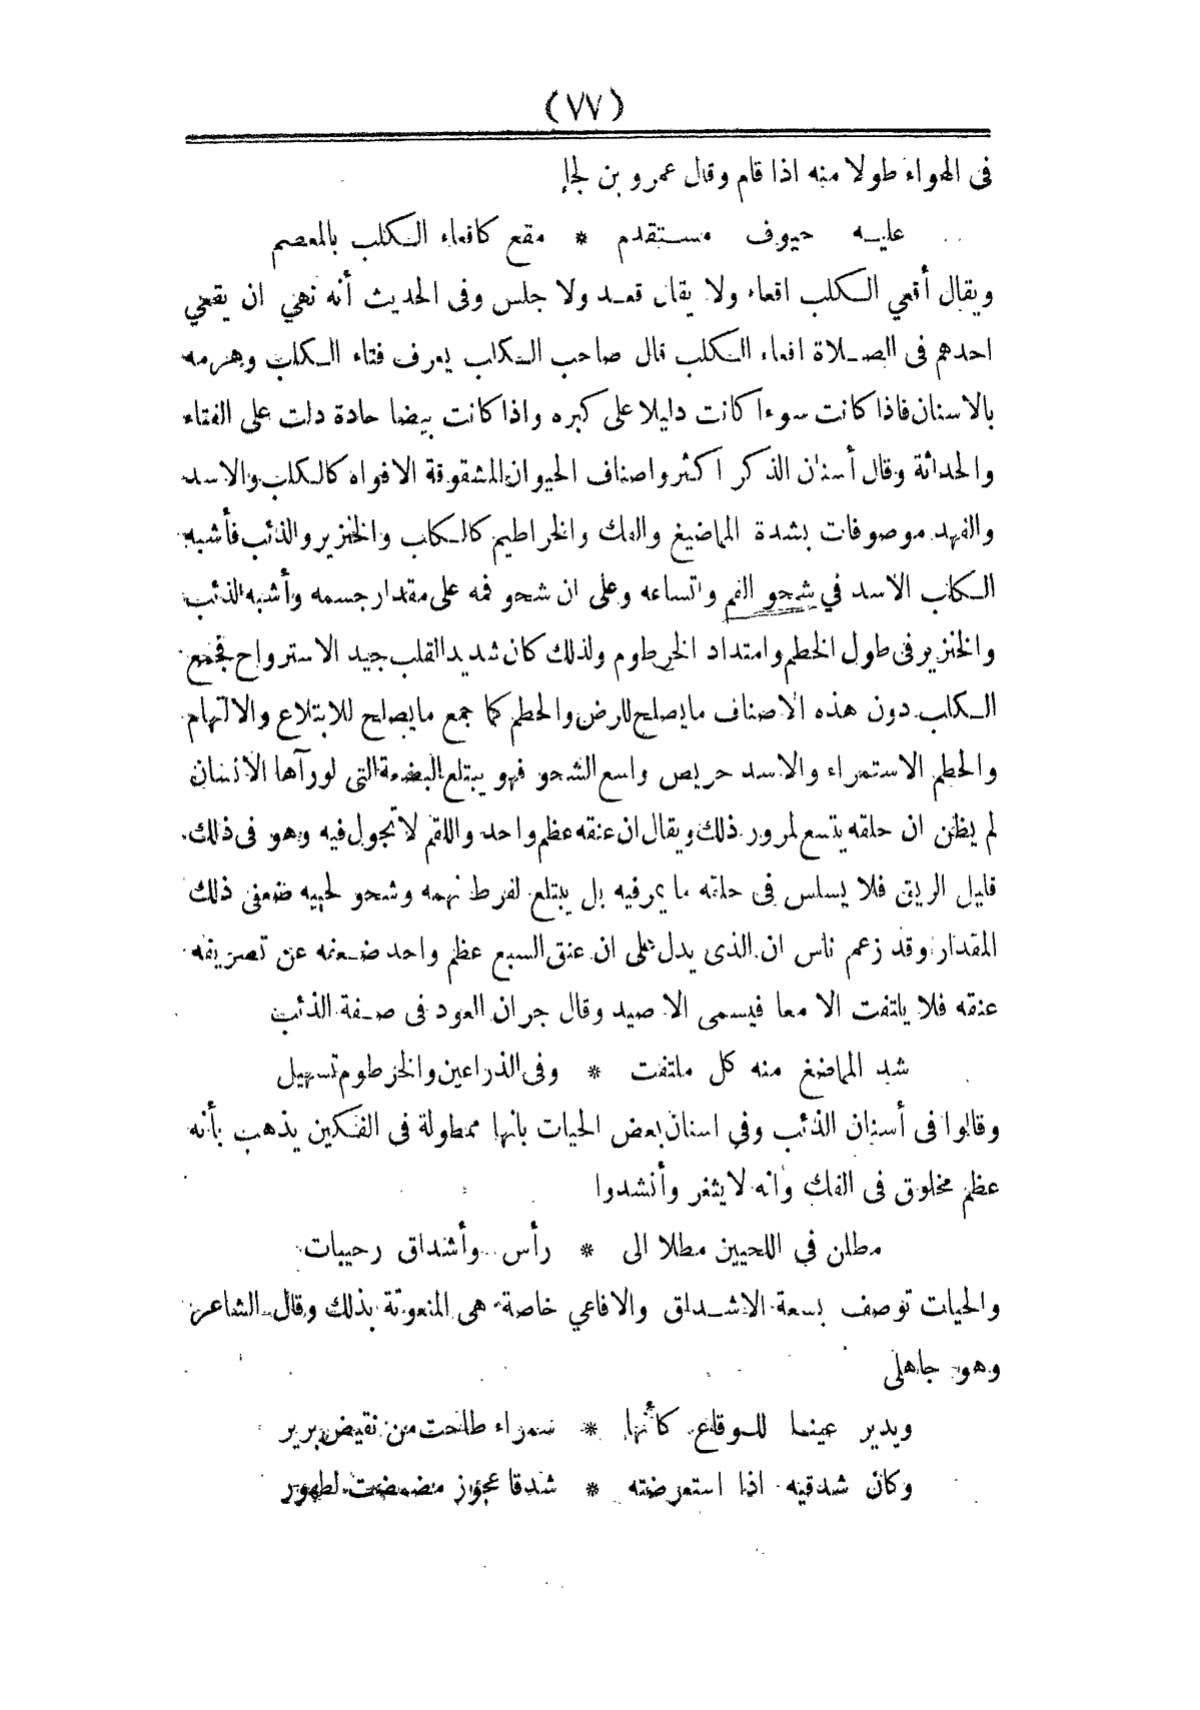 (٧٧)
فى الهواء طولا منه اذا قام وقال عمرو بن لجإ
عليه حيوف مستقدم * مقع كاقعاء الكلب بالمعصم
ويقال أقعي الكلب اقعاء ولا يقال قعد ولا جلس وفى الحديث أنه نهي ان يقعي
احدهم فى الصلاة اقعاء الكلب قال صاحب الكلب يعرف فتاء الكلب وهرمه
بالاسنان فاذا كانت سوءا كانت دليلا على كبره واذا كانت بيضا حادة دلت على الفتاء
والحداثة وقال أسنان الذكر اكثر واصناف الحيوان المشقوقة الافواه كالكلب والاسد
والفهد موصوفات بشدة المماضيغ والفك والخراطيم كالكلب والخنزير والذئب فأشبه
الكلب الاسد في شحو الفم واتساعه وعلى ان شحو فمه على مقدار جسمه وأشبه الذئب
والخنزير فى طول الخطم وامتداد الخرطوم ولذلك كان شديد القلب جيد الاسترواح فجمع
الكلب دون هذه الاصناف ما يصلح للرض والحطم كما جمع ما يصلح للابتلاع والالتهام
والحطم الاستمراء والاسد حريص واسع الشحو فهو يبتلع البضعة التى لو رآها الانسان
لم يظن ان حلقه يتسع لمرور ذلك ويقال ان عنقه عظم واحد واللقم لا تجول فيه وهو فى ذلك
قليل الريق فلا يسلس فى حلقه ما يمر فيه بل يبتلع لفرط نهمه وشحو لحييه ضعفى ذلك
المقدار وقد زعم ناس ان الذى يدل على ان عنق السبع عظم واحد ضعفه عن تصريفه
عنقه فلا يلتفت الا معا فيسمى الاصيد وقال جران العود فى صفة الذئب
شد المماضغ منه كل ملتفت * وفى الذراعين والخرطوم تسهيل
وقالوا فى أسنان الذئب وفي اسنان بعض الحيات بانها ممطولة فى الفكين يذهب بأنه
عظم مخلوق فى الفك وانه لا يثغر وأنشدوا
مطلن في اللحيين مطلا الى * رأس وأشداق رحيبات
والحيات توصف بسعة الاشداق والافاعي خاصة هى المنعوتة بذلك وقال الشاعر
وهو جاهلى
ويدير عينا للوقاع كأنها * سمراء طاحت من نقيض برير
وكأن شدقيه اذا استعرضته * شدقا عجوز مضمضت لطهور